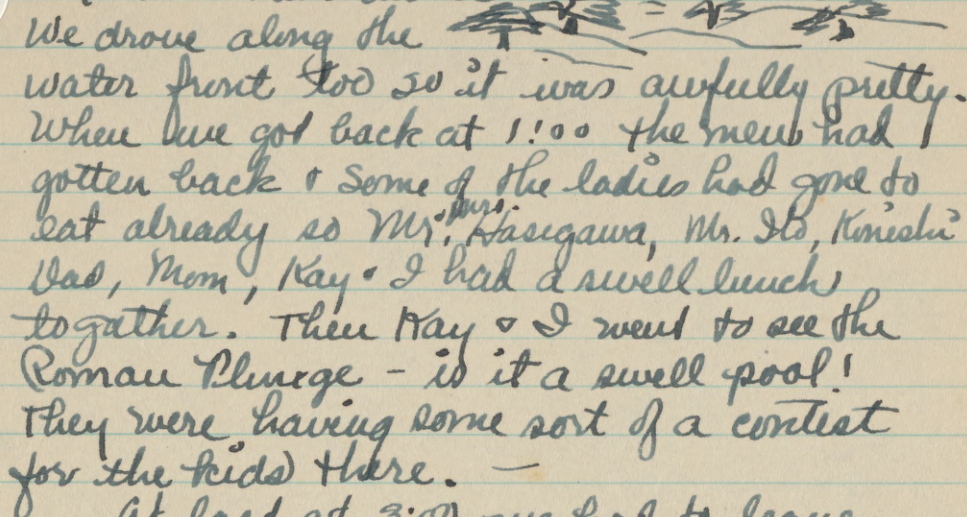 We drove along the
water front too so it was awfully pretty.
When we got back at 1!00 the men had
gotten back & some of the ladies had gone to
eat already so Mr. & Mrs. Hasegawa, Mr. Ito, Kinishi
Dad, Mom, Kay & I had a swell lunch
togather. Then Kay & I went to see the
Roman Plunge - is it a swell pool!
They were having some sort of a contest
for the kids there. —
At last at 3:00 we had to leave